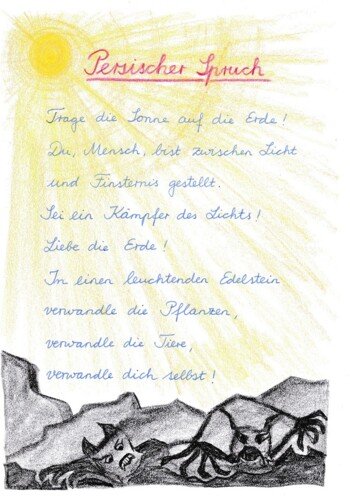 Persischer Spruch
Trage die Sonne auf die Erde!
Du, Mensch, bist zwischen Licht
und Finsternis gestellt.
Sei ein Kämpfer des Lichts!
Liebe die Erde!
In einen leuchtenden Edelstein
verwandle die Pflanzen,
verwandle die Tiere,
verwandle dich selbst!